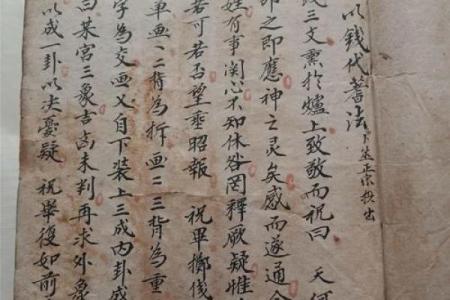 以錢代蓍法 卜筮正宗抄出
錢三文熏於爐上致敬而祝曰 天何
叩之即應神之灵矣感而遂通
姓有事関心不知休咎罔釋厥疑惟
若可若否望垂昭報 祝畢擲
单画二背為拆画二三背為重
字為交画乂自下装上三成内卦成
曰某宮三象吉凶未判再求外象
以成一卦以決憂疑 祝畢復如前